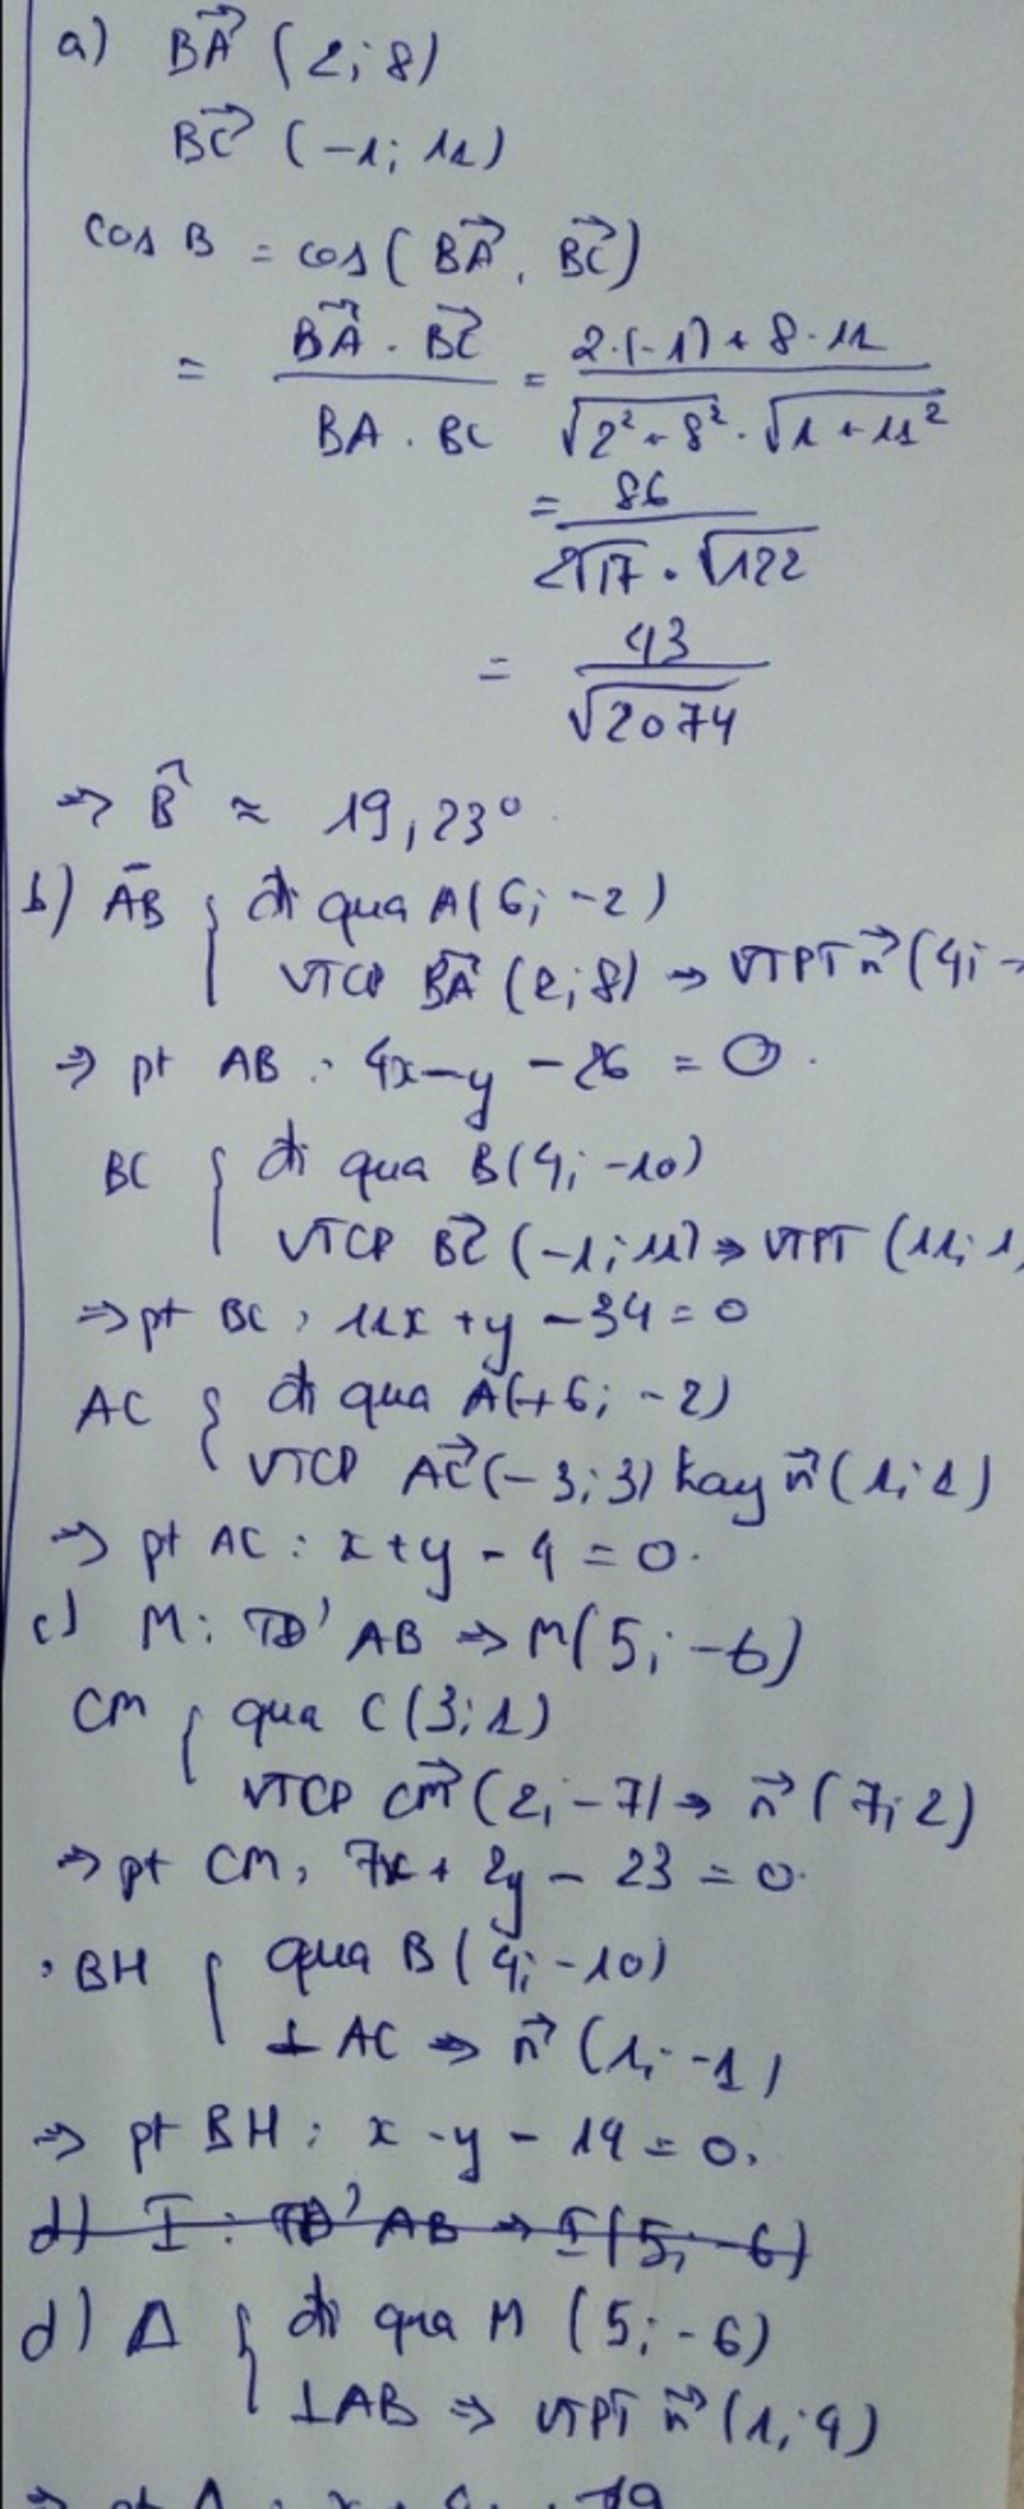 a) BA→ (2; 8)
BC→ (-1; 11)
cos B = cos(BA→, BC→)
= BA→ . BC→ / BA . BC = 2.(-1) + 8.11 / √2²+8² . √1+11²
= 86 / 2√17 . √122
= 43 / √2074
=> B̂ ≈ 19,23°
b) AB { đi qua A(6; -2)
VTCP BA→ (2; 8) => VTPT n→ (4; -
=> pt AB : 4x - y - 26 = 0.
BC { đi qua B(4; -10)
VTCP BC→ (-1; 11) => VTPT (11; 1)
=> pt BC : 11x + y - 34 = 0
AC { đi qua A(+6; -2)
VTCP AC→ (-3; 3) hay n→ (1; 1)
=> pt AC : x + y - 4 = 0.
c) M : TĐ' AB => M(5; -6)
CM { qua C(3; 1)
VTCP CM→ (2; -7) => n→ (7; 2)
=> pt CM : 7x + 2y - 23 = 0.
. BH { qua B(4; -10)
⊥ AC => n→ (1; -1)
=> pt BH : x - y - 14 = 0.
d) I : TĐ' AB => I(5; -6)
d) Δ { đi qua M (5; -6)
⊥ AB => VTPT n→ (1; 4)
=> pt Δ : x + 19